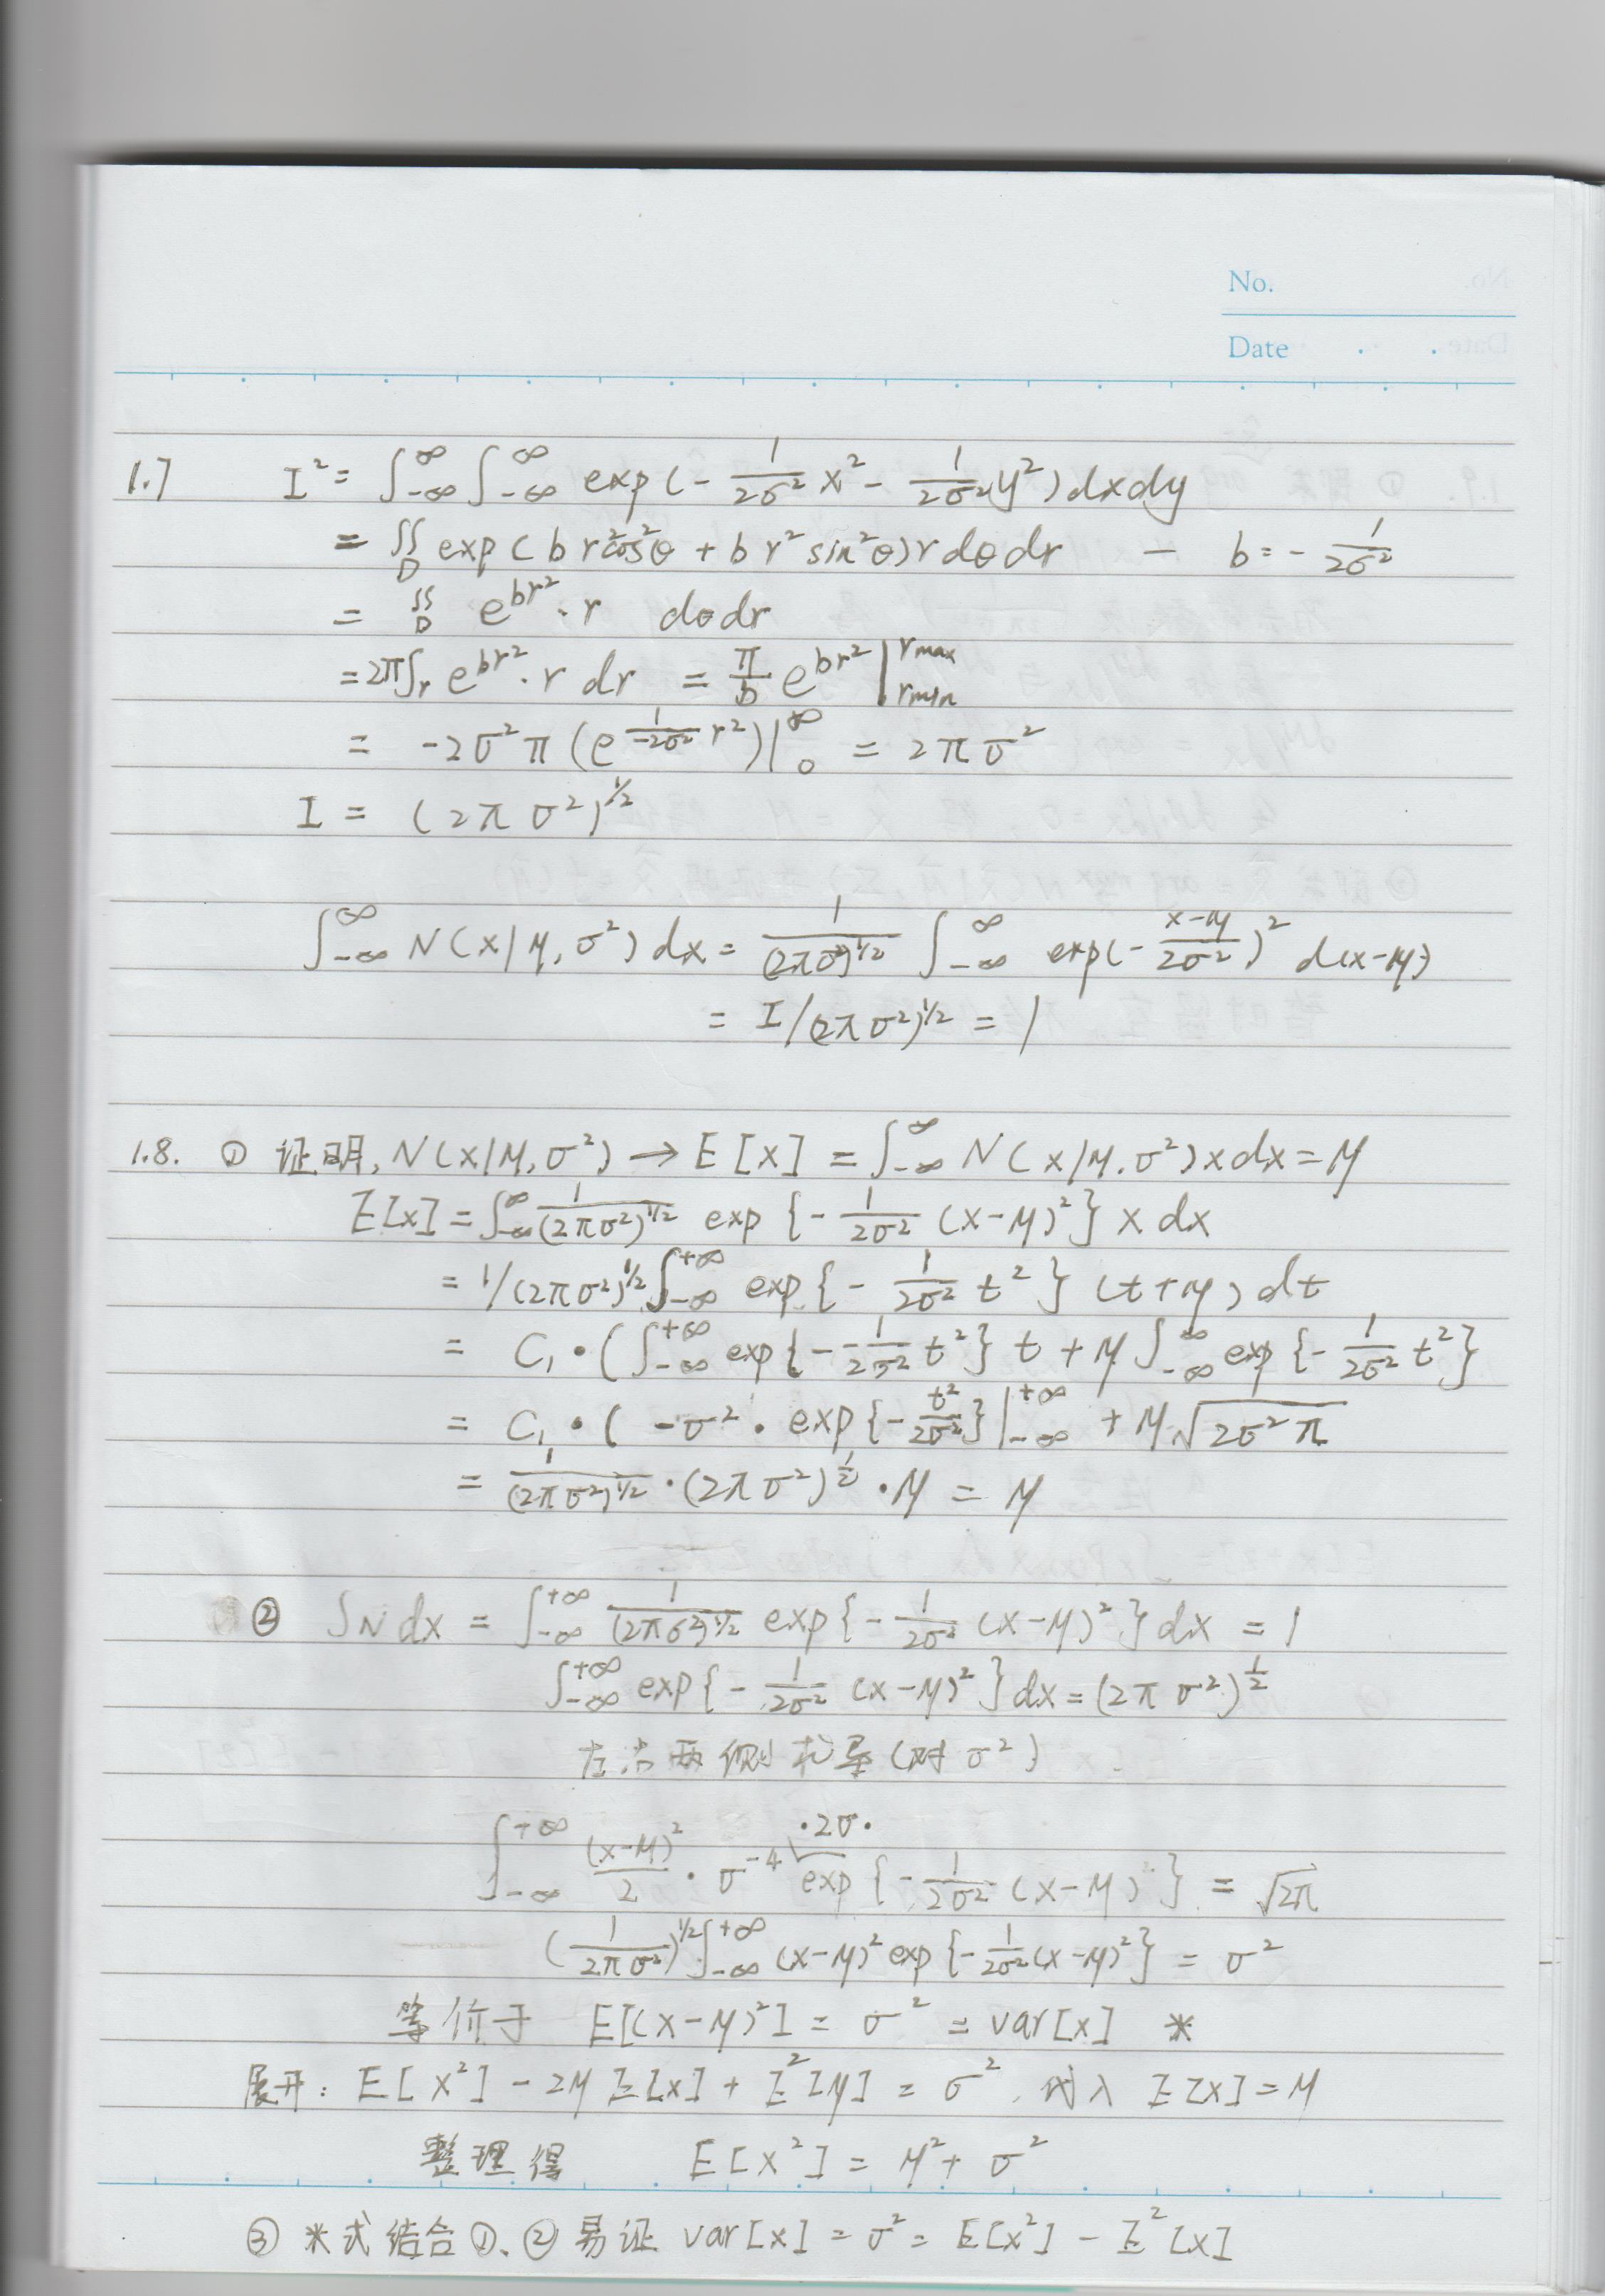 No.
Date
1.7 I² = ∫_{-∞}^{∞} ∫_{-∞}^{∞} exp(-\frac{1}{2σ²}x² - \frac{1}{2σ²}y²)dxdy
= ∬_D exp(br²cos²θ + br²sin²θ)rdθdr — b = -\frac{1}{2σ²}
= ∬_D e^{br²}·r dθdr
= 2π∫_r e^{br²}·r dr = \frac{π}{b} e^{br²}|_{rmin}^{rmax}
= -2σ²π(e^{\frac{1}{-2σ²}r²})|_0^∞ = 2πσ²
I = (2πσ²)^{1/2}
∫_{-∞}^{∞} N(x|μ,σ²)dx = \frac{1}{(2πσ²)^{1/2}} ∫_{-∞}^{∞} exp(-\frac{x-μ}{2σ²})² d(x-μ)
= I/(2πσ²)^{1/2} = 1
1.8. ① 证明, N(x|μ,σ²) → E[x] = ∫_{-∞}^{∞} N(x|μ,σ²)xdx = μ
E[x] = ∫_{-∞}^{∞} \frac{1}{(2πσ²)^{1/2}} exp{-\frac{1}{2σ²}(x-μ)²} x dx
= 1/(2πσ²)^{1/2} ∫_{-∞}^{+∞} exp{-\frac{1}{2σ²}t²} (t+μ) dt
= C₁·(∫_{-∞}^{+∞} exp{-\frac{1}{2σ²}t²} t + μ∫_{-∞}^{∞} exp{-\frac{1}{2σ²}t²}
= C₁·( -σ²·exp{-\frac{t²}{2σ²}}|_{-∞}^{+∞} + μ√{2σ²π}
= \frac{1}{(2πσ²)^{1/2}}·(2πσ²)^{\frac{1}{2}}·μ = μ
② ∫Ndx = ∫_{-∞}^{+∞} \frac{1}{(2πσ²)^{1/2}} exp{-\frac{1}{2σ²}(x-μ)²}dx = 1
∫_{-∞}^{+∞} exp{-\frac{1}{2σ²}(x-μ)²}dx = (2πσ²)^{\frac{1}{2}}
左右两侧求导(对σ²)
∫_{-∞}^{+∞} \frac{(x-μ)²}{2}·σ^{-4} ·2σ· exp{-\frac{1}{2σ²}(x-μ)²} = √{2π}
(\frac{1}{2πσ²})^{1/2} ∫_{-∞}^{+∞} (x-μ)² exp{-\frac{1}{2σ²}(x-μ)²} = σ²
等价于 E[(x-μ)²] = σ² = var[x] *
展开: E[x²] - 2μE[x] + E²[μ] = σ², 代入 E[x] = μ
整理得 E[x²] = μ² + σ²
③ *式结合①、②易证 var[x] = σ² = E[x²] - E²[x]